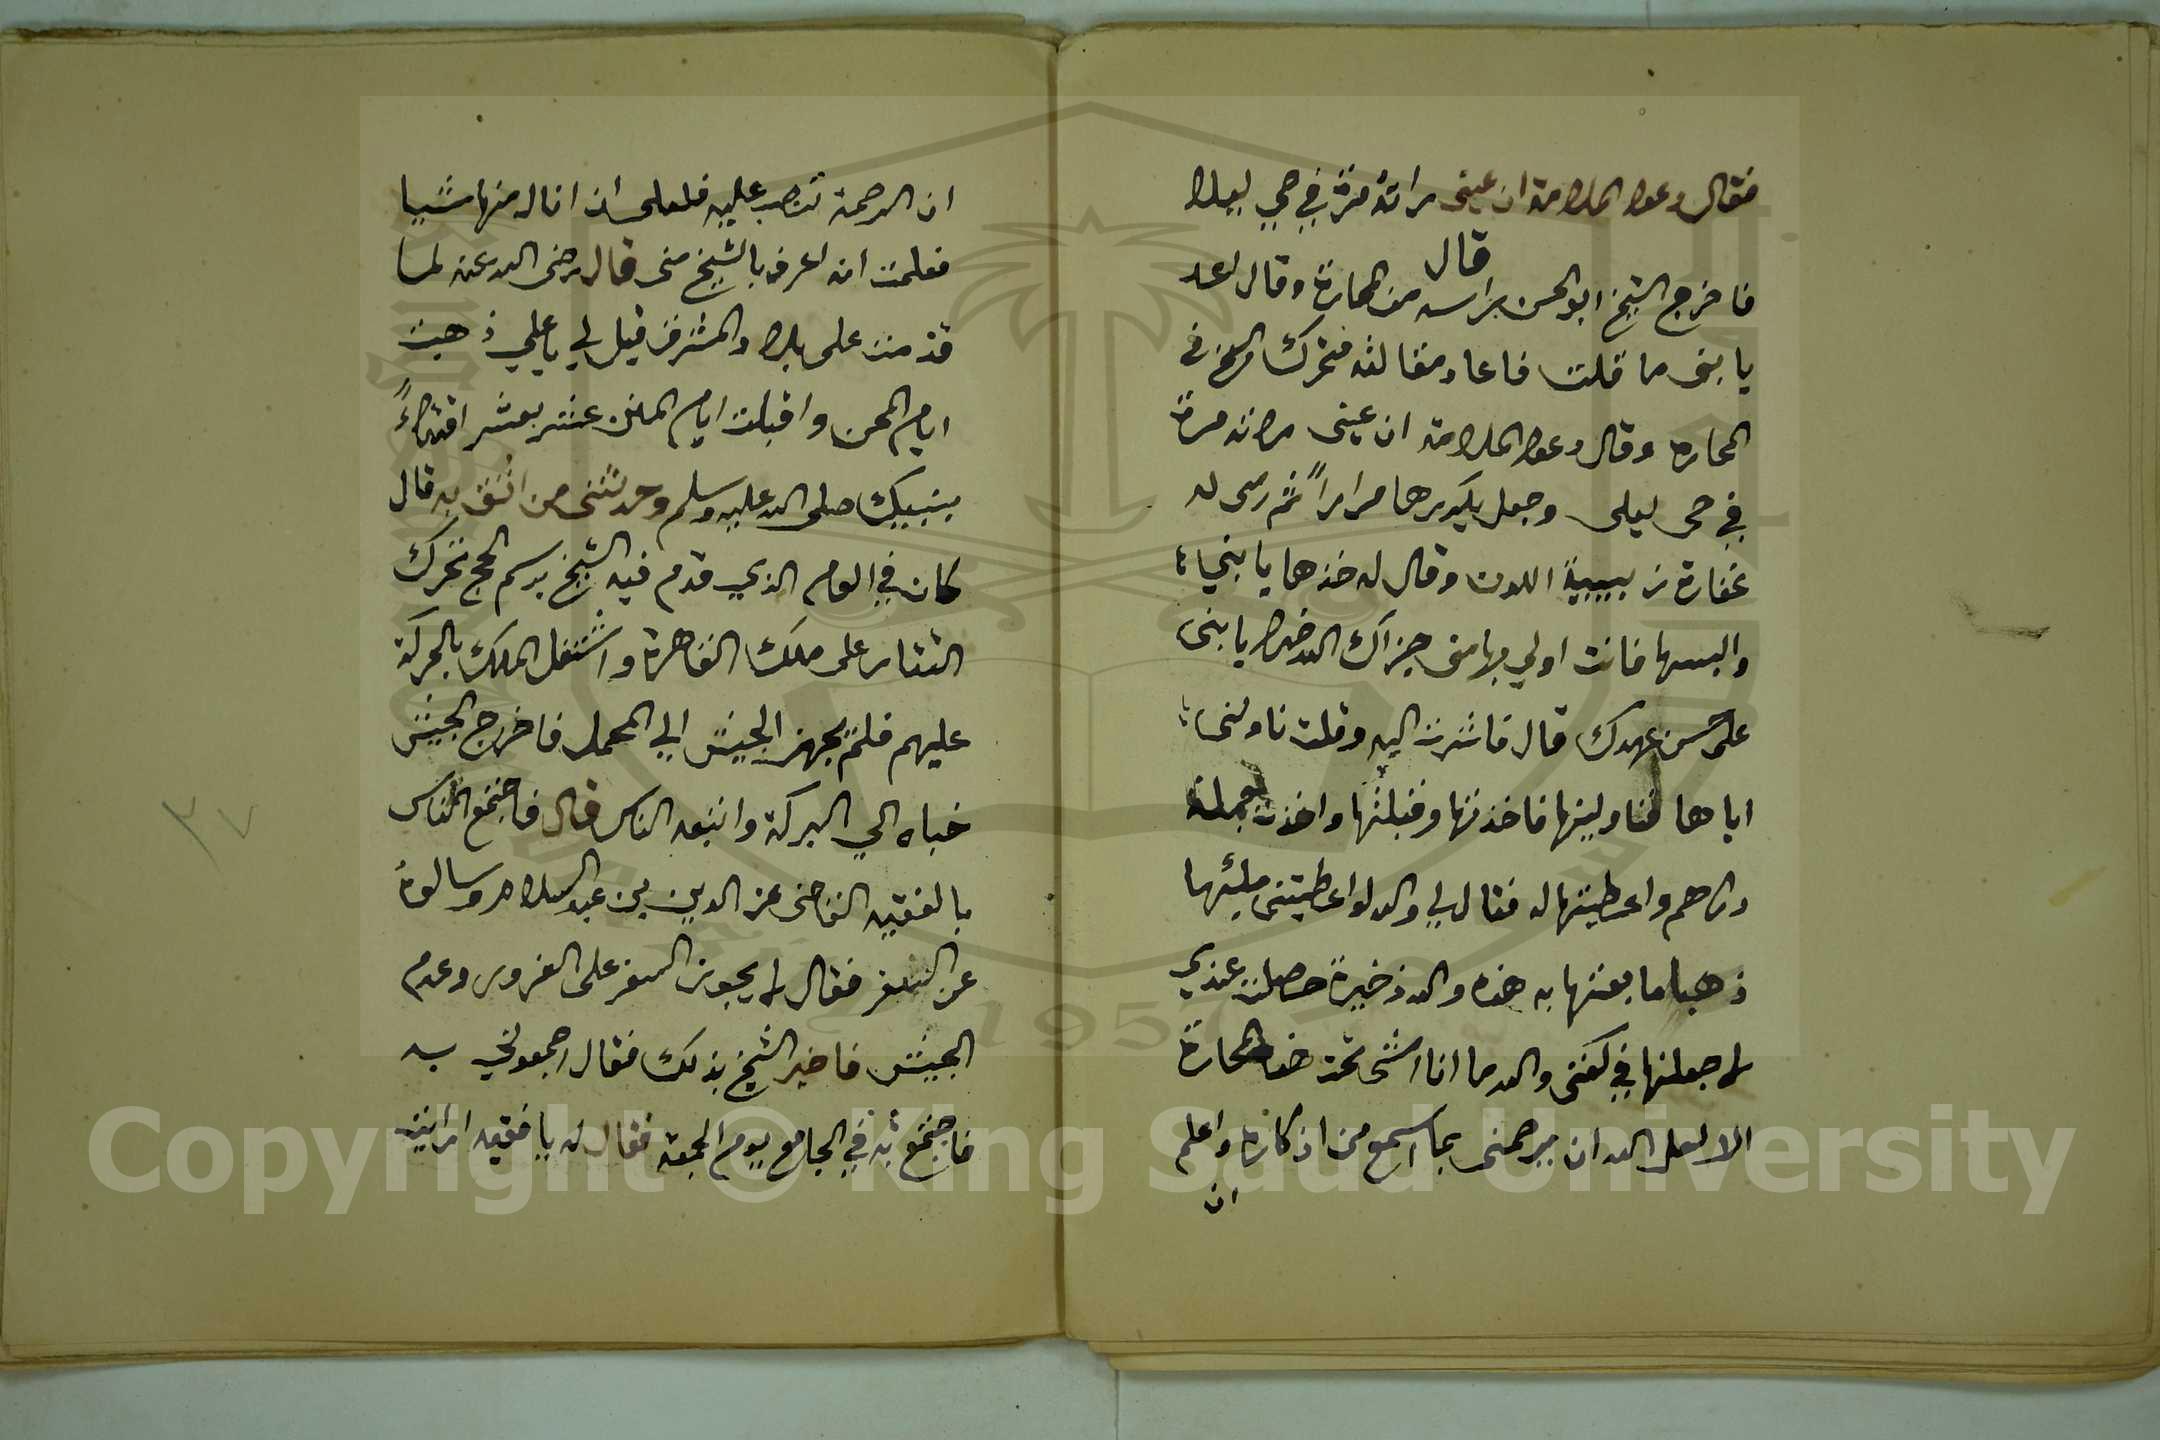 فقال دعوا الملامة ان عيني راته مرة في حي ليلا
قال
فاخرج الشيخ ابوالحسن براسه من المحارة وقال اعد
يا بني ما قلت فاعاد مقالته فتحرك الشيخ في
المحاره وقال دعوا الملامة ان عيني راته مرة
في حي ليلى وجعل يكررها مرارا ثم رمى له
غفارة زبيبية اللون وقال له خذها يا بني
والبسها فانت اولي بها مني جزاك الله خيرا يا بني
على حسن عهدك قال فاشرت اليه وقلت ناولني
اياها فناولينها فاخذتها وقبلتها واخذت جملة
دراهم واعطيتها له فقال لي والله لو اعطيتني ملئها
ذهبا ما بعتها به هذه والله ذخيرة حصلت عندي
لاجعلنها في كفني والله ما انا امشى تحت هذه المحارة
الا لعل الله ان يرحمني بما اسمع من اذكاره واعلم
ان
ان الرحمة تنصب عليه فلعلى ان انال منها شيا
فعلمت انه اعرف بالشيخ مني قال رضى الله عنه لما
قدمت على بلاد المشرق قيل لي يا علي ذهبت
ايام المحن واقبلت ايام المنن عشر بعشر اقتداءً
بنبيك صلى الله عليه وسلم وحدثني من اثق به قال
كان في العام الذي قدم فيه الشيخ برسم الحج تحرك
التتار على ملك القاهرة واشتغل الملك بالحركة
عليهم فلم يجهز الجيش الي المحمل فاخرج الجيش
خباه الي البركة واتبعه الناس قال فاجتمع الناس
بالفقيه القاضى عز الدين بن عبد السلام وسالوه
عن السفر فقال لا يجوز السفر على الغرور وعدم
الجيش فاخبر الشيخ بذلك فقال اجمعوني به
فاجتمع به في الجامع يوم الجمعة فقال له يا فقيه ارايت
٢٧
1957
Copyright © King Saud University